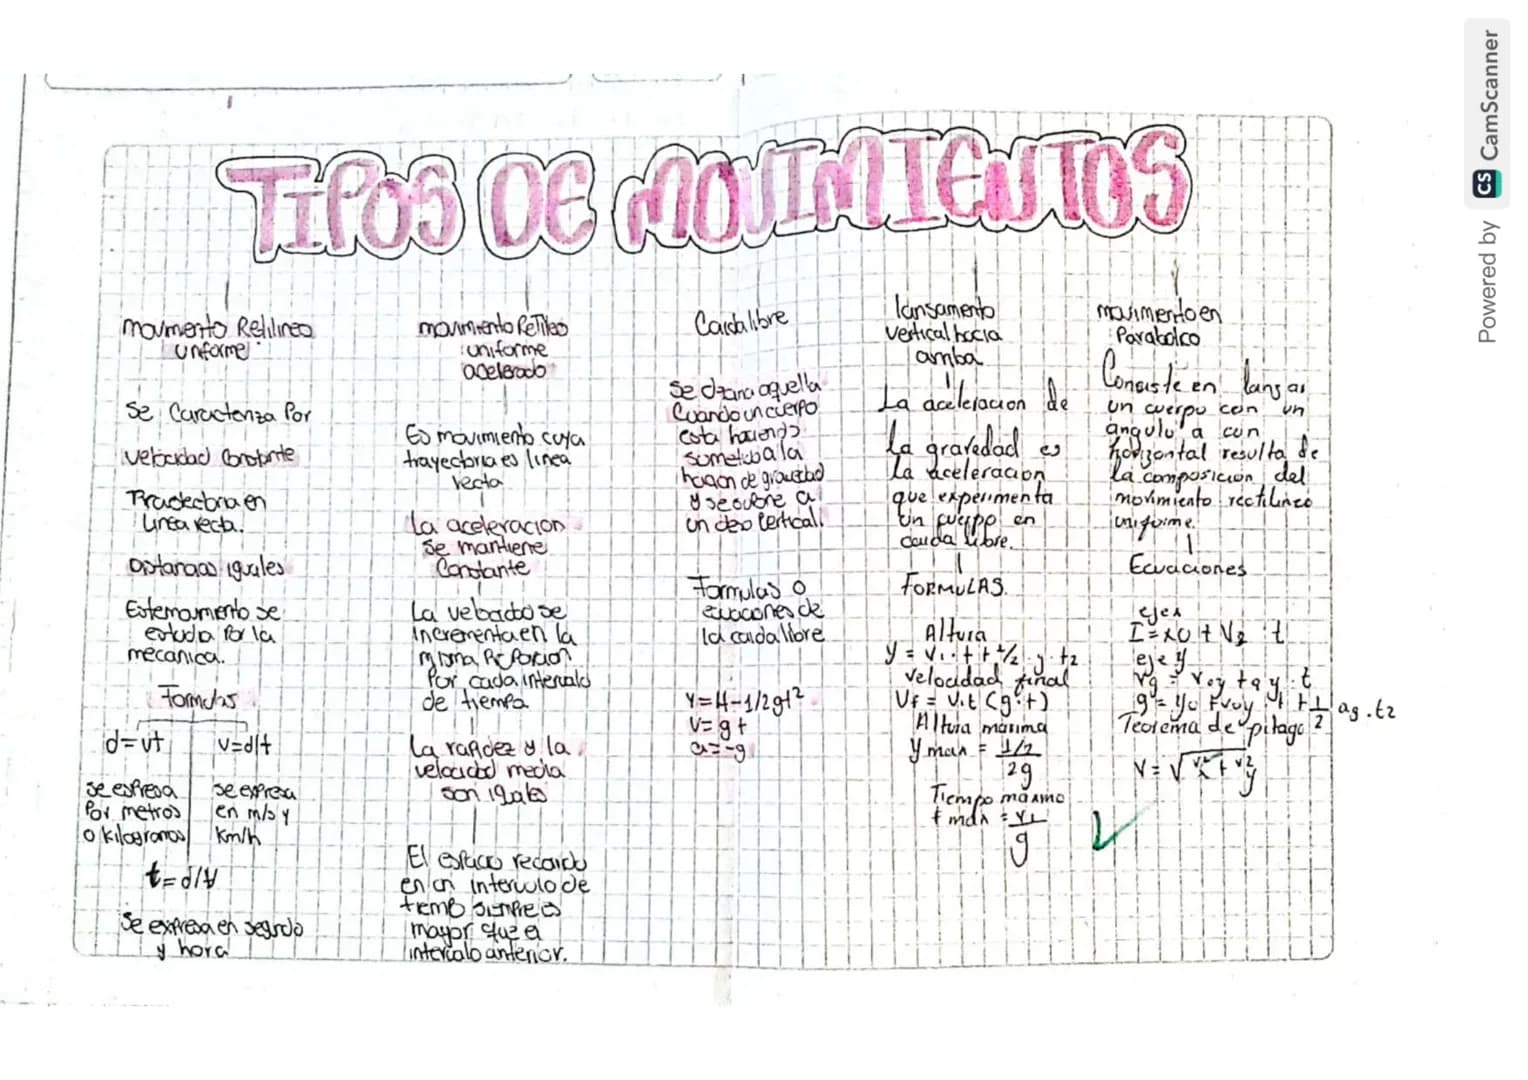 TIPOS DE MOVIMIENTOS
movimento Retilineo
unforme
Se Caracteriza Por
velocidad Constante
en
Linea recta.
iguales
se
estudia Por la
mecanica.
Formulas
d=vt
v=d/t
se expresa
Por metros
o kilogramos
se expresa
en m/s y
Km/h
t=d/v
Se expresa en segndo
y hora
movimiento
uniforme
acelerado
Es movimiento cuya
trayectoria es linea
recta
La aceleracion
se mantiene
Constante
La se
incrementa en la
misma
Por cada intervalo
de tiempo
La rapidez y la
velocidad media
son iguales
El espacio recorrido
en un intervulo de
siempre es
mayor que el
intervalo anterior.
Caida libre
se aquella
Cuando un cuerpo
esta haciendo
a la
de gravedad
y se a
un vertical.
Formulas o
ecuaciones de
la caida libre
Y=H-1/2gt²
V=gt
a=-g
lansamento
vertical hacia
arriba
La aceleracion de
La gravedad es
La aceleracion
que experimenta
Un cuerpo en
caida libre.
FORMULAS.
Altura
y = V₁.t + 1/2 g.t2
velocidad final
Vf = V.t (g.t)
Altura maxima
Y max = 1/2
2g
Tiempo maximo
t max = V1
g
movimento en
Parabolco
Consiste en lanzar
un cuerpo con un
angulo a con
horizontal resulta de
La composicion del
movimiento rectilineo
uniforme.
Ecuaciones
ejex
I = x0 + V t
eje y
Vg = Voy + ay . t
g = yo + voy . t + 1/2 ag . t2
Teorema de pitago
V = √
Powered by CS CamScanner